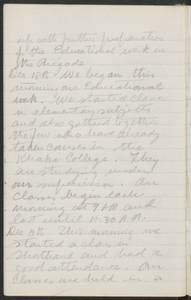 of the Educational work in
the Brigade.
Dec 18th We began this
morning our Educational
work. We started classes
in elementary subjects
and also gathered together
the few who have already
taken courses in the
Khaki College. They
are studying under
our supervision. Our
classes begin each
morning at 9 A.M. and
last until 11.30 A.M.
Dec 19th This morning we
started a class in
Shorthand and had a
good attendance. Our
classes are held in a